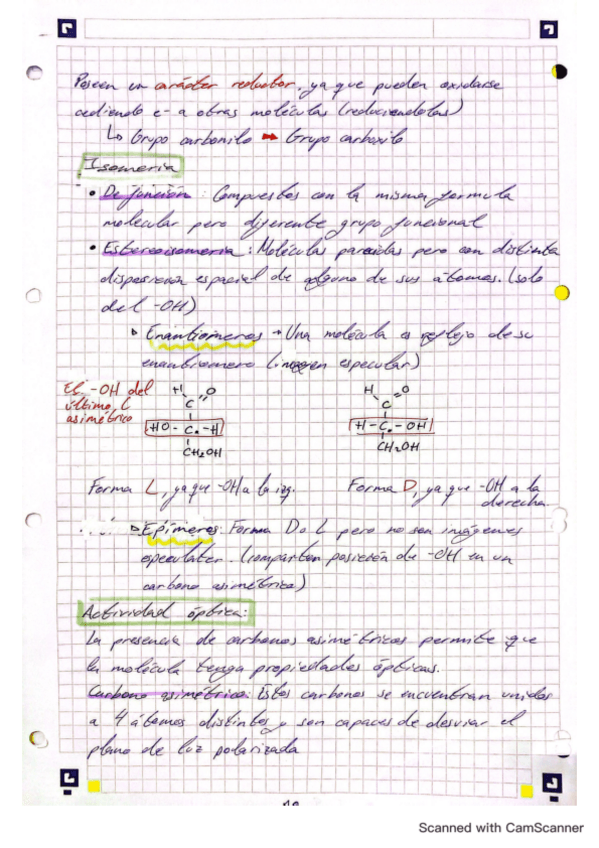 Poseen un carácter reductor, ya que pueden oxidarse
cediendo e- a otras moléculas (reduciendolas)
↳ Grupo carbonilo ➡ Grupo carboxilo
Isomeria
• De función: Compuestos con la misma formula
molecular pero diferente grupo funcional
• Estereoisomeria: Moléculas parecidas pero con distinta
disposición espacial de alguno de sus átomos. (solo
del -OH)
Enantiómeros → Una molécula es reflejo de su
enantiomero (imagen especular)
El -OH del
último C
asimétrico
H O
C
HO - C - H
CH2OH
H O
C
H - C - OH
CH2OH
Forma L, ya que -OH a la izq.
Forma D, ya que -OH a la
derecha.
Epímeros: Forma D o L pero no son imágenes
especulater. (comparten posición de -OH en un
carbono asimétrico)
Actividad óptica:
La presencia de carbonos asimétricos permite que
la molécula tenga propiedades ópticas.
Carbono asimétrico: Estos carbonos se encuentran unidos
a 4 átomos distintos y son capaces de desviar el
plano de luz polarizada
Scanned with CamScanner